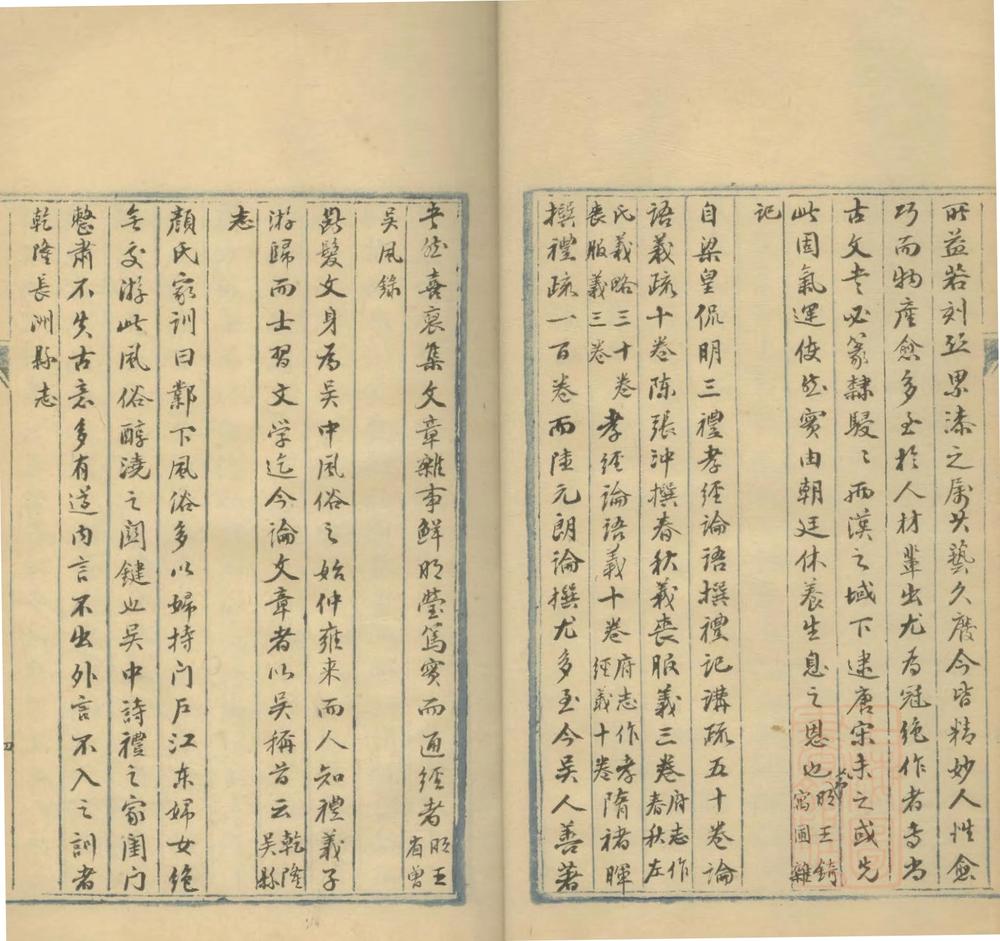 所益若刻丝累漆之属其藝久廢今皆精妙人性愈
巧而物產愈多至於人材輩出尤為冠絶作者專尚
古文書必篆隸駸〻兩漢之域下逮唐宋未之或先
此固氣運使然實由朝廷休養生息之恩也明王錡寓圃雜
記
自梁皇侃明三禮孝經論語撰禮記講疏五十卷論
語義疏十卷陳張沖撰春秋義喪服義三卷府志作春秋左
氏義略三十卷喪服義三卷孝經論語義十卷府志作孝經義十卷隋褚暉
撰禮疏一百卷而陸元朗論撰尤多至今吳人善著
書然喜裒集文章雜事鮮明瑩篤實而通經者明王省曾
吳風錄
斷髮文身為吳中風俗之始仲雍来而人知禮義子
游歸而士習文学迄今論文章者以吳稱首云乾隆吳縣
志
顏氏家訓曰鄴下風俗多以婦持门戶江东婦女絶
無交游此風俗醇澆之関鍵也吳中詩禮之家閨门
整肅不失古意多有遵内言不出外言不入之訓者
乾隆長洲縣志
四